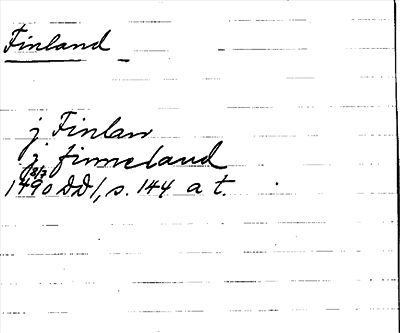 Finland
j Finlan
j finneland
18/3
1490 DD1, s. 144 a t.